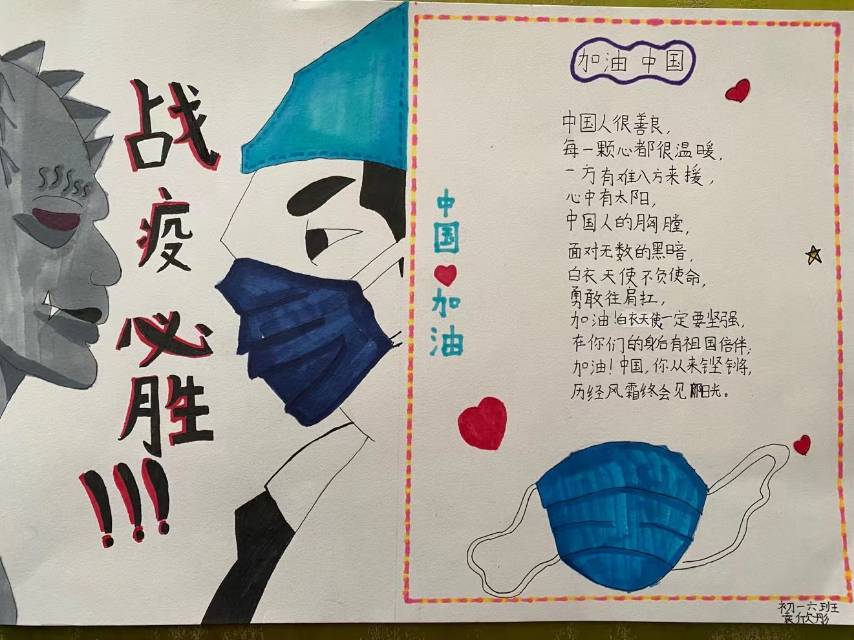 战疫必胜!!!
中国加油
加油中国
中国人很善良,
每一颗心都很温暖,
一方有难八方来援,
心中有太阳,
中国人的胸膛,
面对无数的黑暗,
白衣天使不负使命,
勇敢往肩扛,
加油!白衣天使一定要坚强,
在你们的身后有祖国倍伴;
加油!中国,你从来铿锵,
历经风霜终会见阳光。
初一六班
袁欣彤